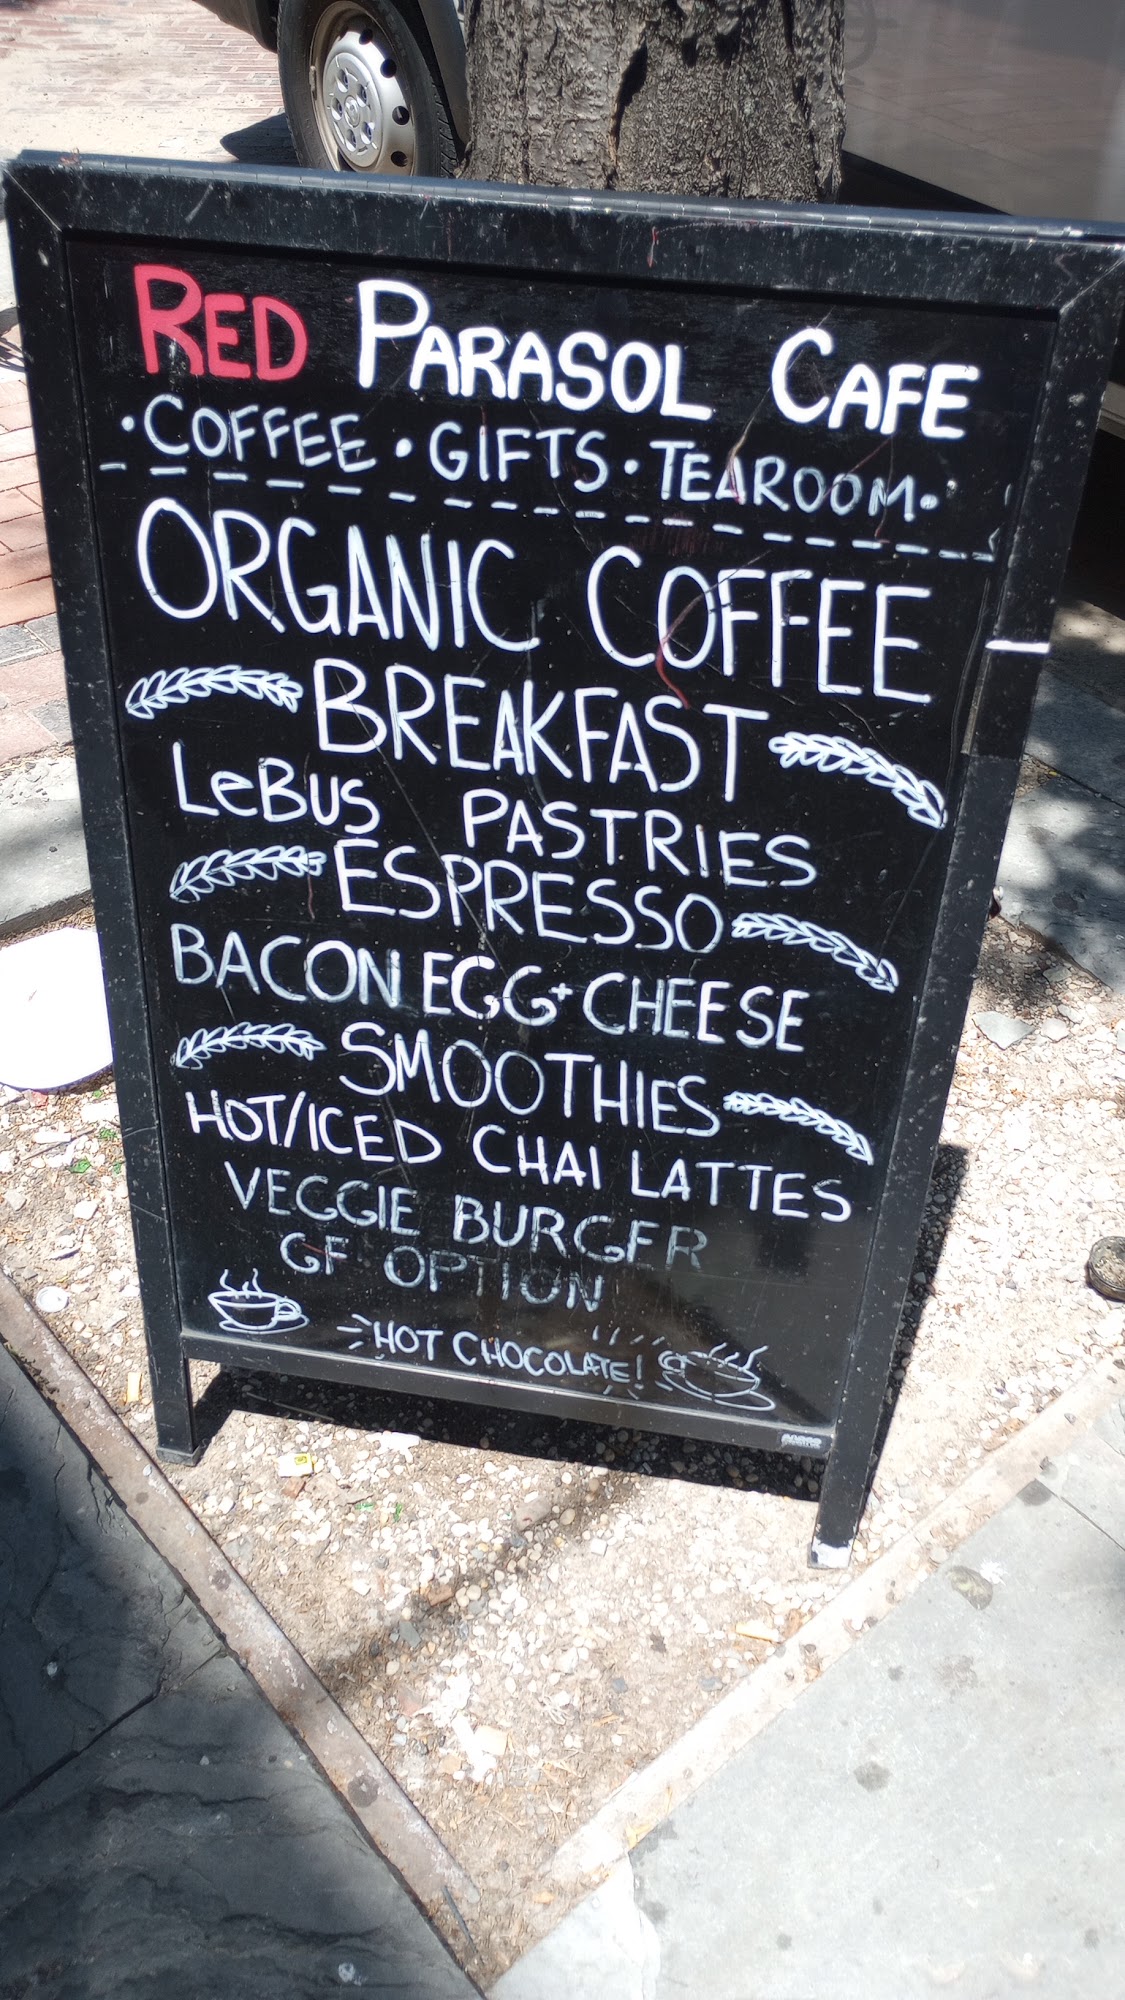 RED PARASOL CAFE
• COFFEE • GIFTS • TEAROOM •
ORGANIC COFFEE
BREAKFAST
LeBUS PASTRIES
ESPRESSO
BACON EGG + CHEESE
SMOOTHIES
HOT/ICED CHAI LATTES
VEGGIE BURGER
GF OPTION
HOT CHOCOLATE!